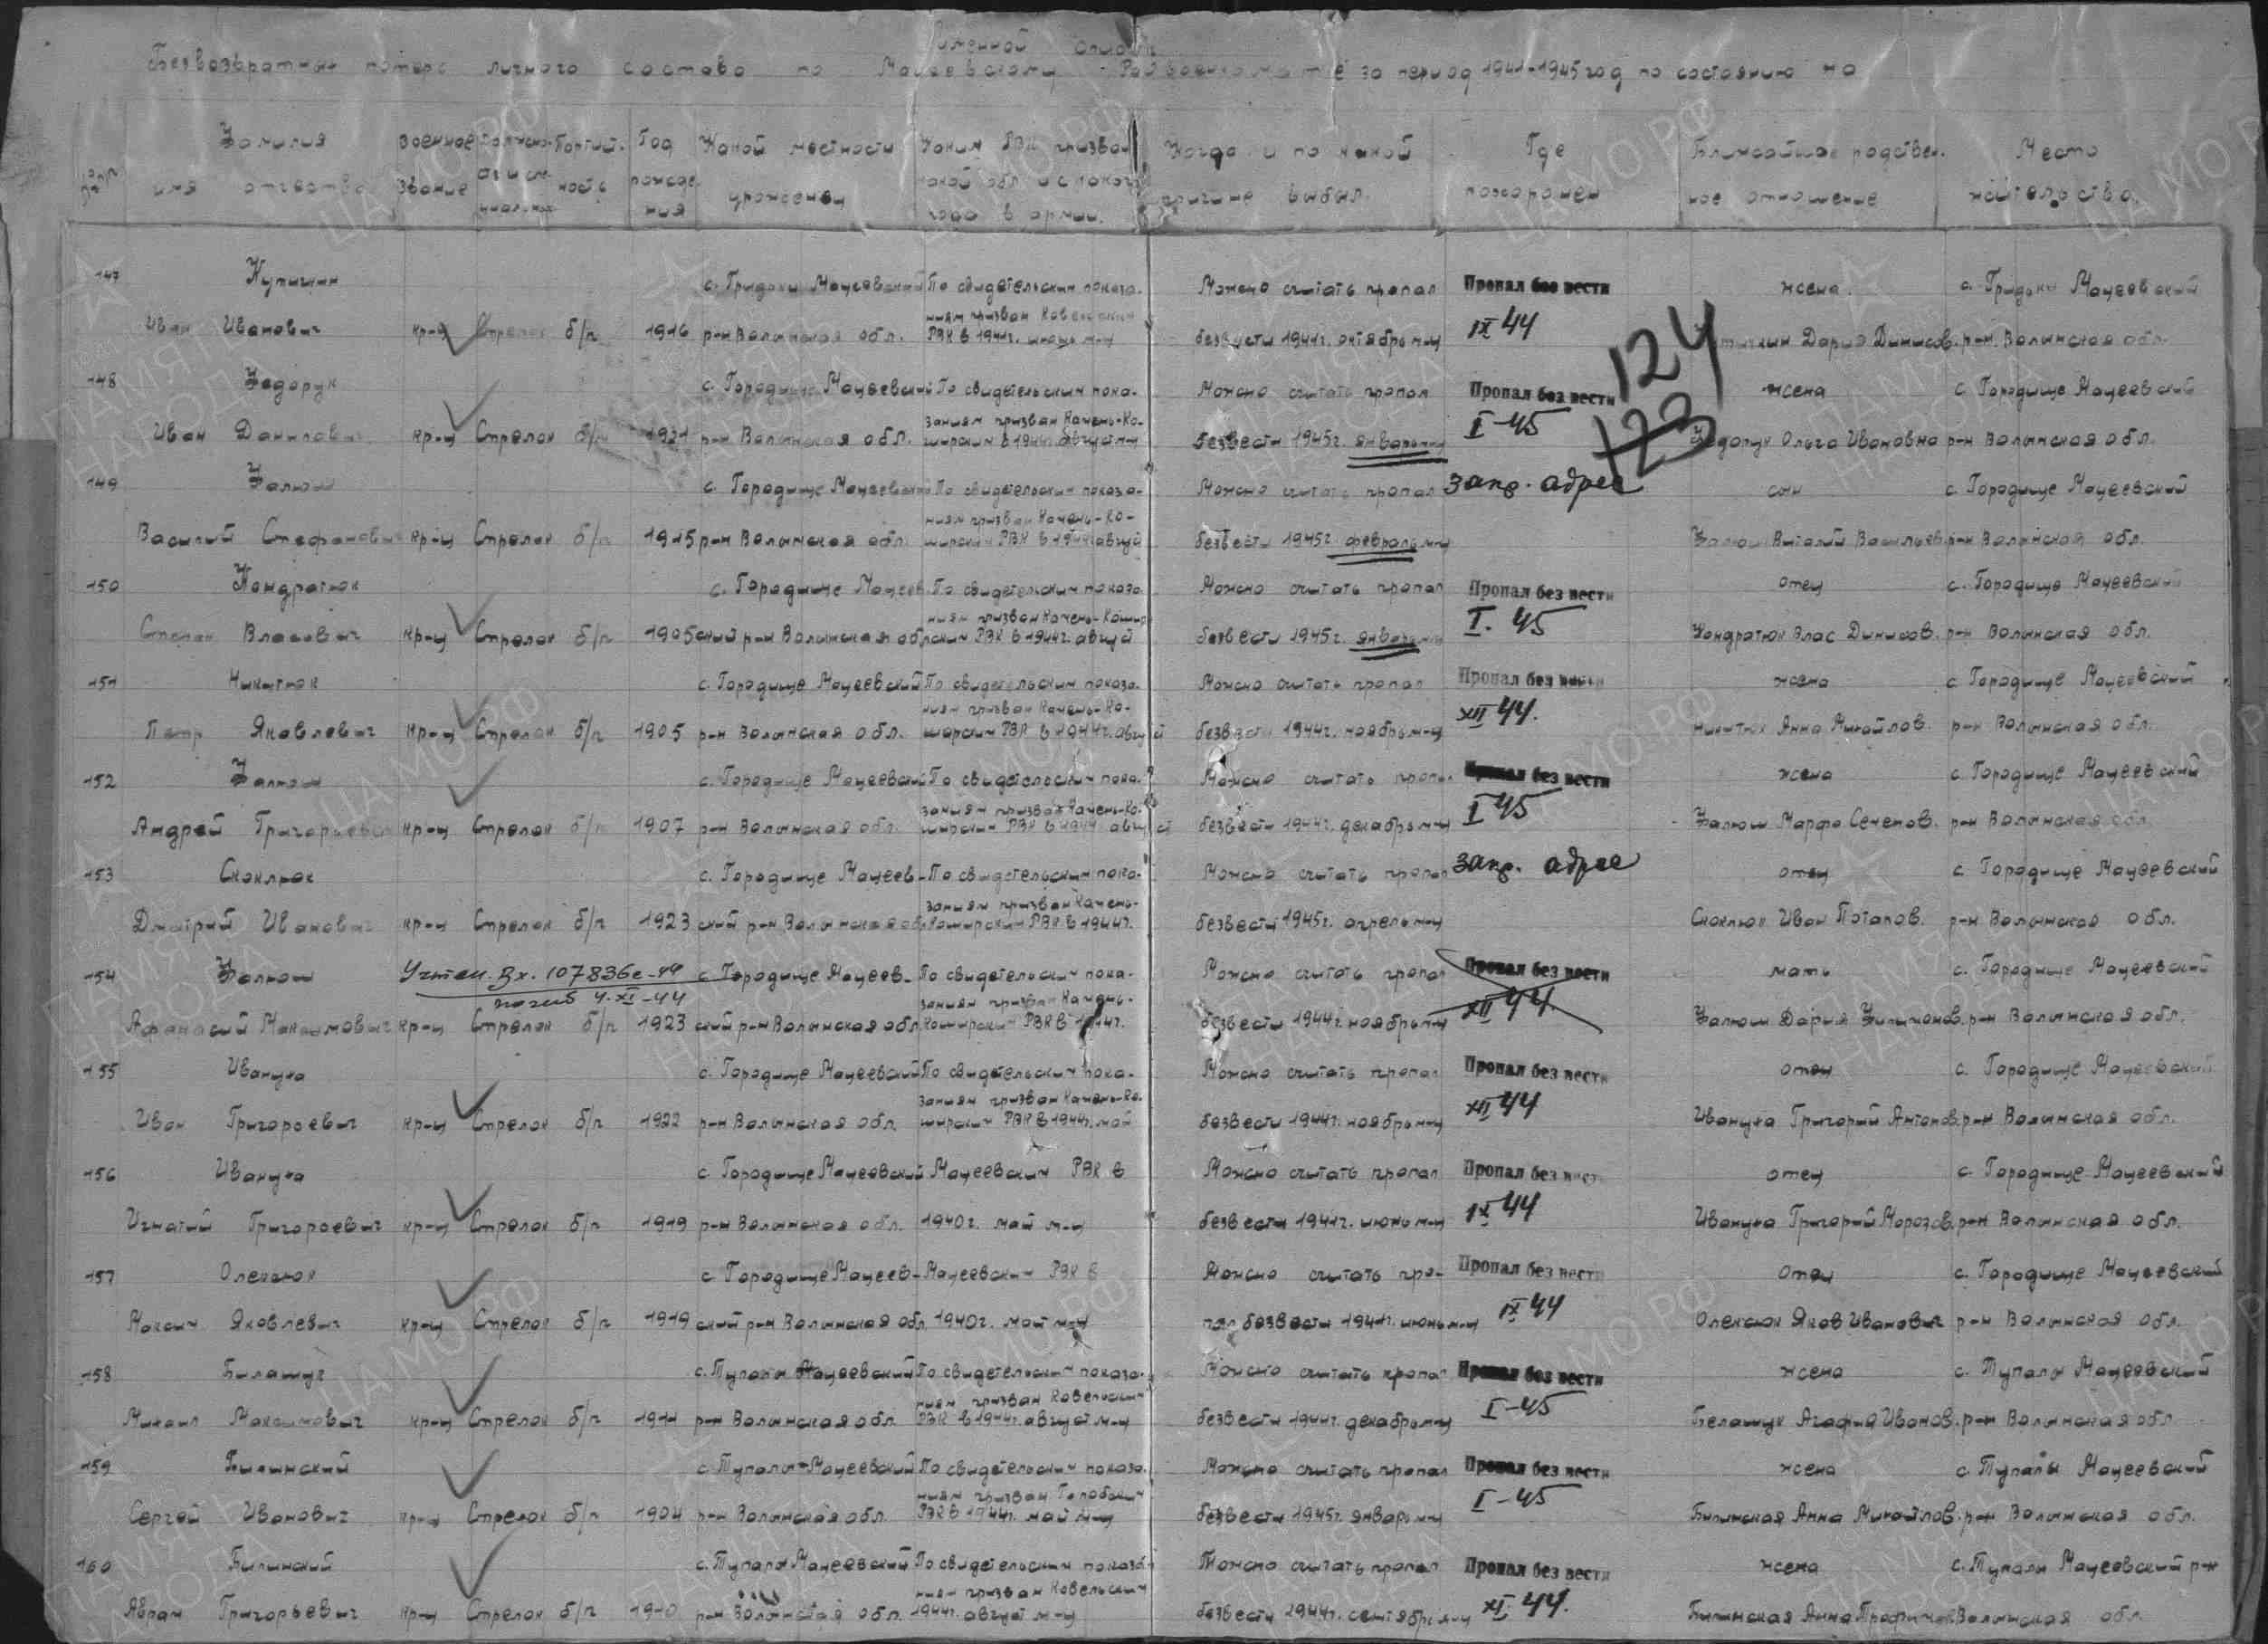 Именной список
Безвозвратных потерь личного состава по Мацеевскому Райвоенкомате за период 1941-1945 год по состоянию на
№ п/п
Фамилия имя отчество
Военное звание
Партийность
Год рождения
Какой местности уроженец
Каким РВК призван какой обл. и с какого года в армии.
Когда и по какой причине выбыл.
Где похоронен
Ближайшее родственное отношение
Место жительства.
147 с. Мацеевский По свидетельским показа- Можно считать пропал Пропал без вести жена с. Мацеевский
Иван Иванович кр-ц Стрелок б/п 1916 р-н Волынская обл. ниям призван Ковельским РВК в 1941г. безвести 1941г. октябрь м-ц IX 44 Дарья р-н. Волынская обл.
124
123
148 Федорук с. Городище Мацеевский По свидетельским пока- Можно считать пропал Пропал без вести жена с Городище Мацеевский
Иван Данилович кр-ц Стрелок б/п 1921 р-н Волынская обл. заниям призван Камень-Ко- ширским в 1944г. август м-ц безвести 1945г. январь м-ц I-45 Федорук Ольга Ивановна р-н Волынская обл.
149 Фалюш с. Городище Мацеевский По свидетельским показа- Можно считать пропал запр. адрес сын с. Городище Мацеевский
Василий Стефанович кр-ц Стрелок б/п 1915 р-н Волынская обл. ниям призван Камень-Ко- ширским РВК в 1944 август безвести 1945г. февраль м-ц Фалюш Виталий Васильев. р-н Волынская обл.
150 Кондратюк с. Городище Мацеев- По свидетельским показа- Можно считать пропал Пропал без вести отец с. Городище Мацеевский
Степан Власович кр-ц Стрелок б/п 1905 ский р-н Волынская обл. ниям призван Камень-Кошир- ским РВК в 1944г. август безвести 1945г. январь м-ц I. 45 Кондратюк Влас р-н Волынская обл.
151 Никитюк с. Городище Мацеевский По свидетельским показа- Можно считать пропал Пропал без вести жена с Городище Мацеевский
Петр Яковлевич кр-ц Стрелок б/п 1905 р-н Волынская обл. ниям призван Камень-Ко- ширским РВК в 1944г. август безвести 1944г. ноябрь м-ц XII 44. Никитюк Анна Михайлов. р-н Волынская обл.
152 Фалюш с. Городище Мацеевский По свидетельским пока- Можно считать пропал Пропал без вести жена с. Городище Мацеевский
Андрей Григорьевич кр-ц Стрелок б/п 1907 р-н Волынская обл. заниям призван Камень-Ко- ширским РВК в 1944 август безвести 1944г. декабрь м-ц I 45 Фалюш Марфа Семенов. р-н Волынская обл.
153 Скоклюк с. Городище Мацеев- По свидетельским пока- Можно считать пропал запр. адрес отец с Городище Мацеевский
Дмитрий Иванович кр-ц Стрелок б/п 1923 ский р-н Волынская обл. заниям призван Камень- Коширским РВК в 1944г. безвести 1945г. апрель м-ц Скоклюк Иван Потапов. р-н Волынская обл.
154 Фалюш Учтен. Вх. 107836с-44 с. Городище Мацеев- По свидетельским пока- Можно считать пропал Пропал без вести мать с. Городище Мацеевский
погиб 4.XI-44
Афанасий Максимович кр-ц Стрелок б/п 1923 ский р-н Волынская обл. заниям призван Камень- Коширским РВК в 1944г. безвести 1944г. ноябрь м-ц XII 44. Фалюш Дария Филимонов. р-н Волынская обл.
155 Ивануха с. Городище Мацеевский По свидетельским пока- Можно считать пропал Пропал без вести отец с. Городище Мацеевский
Иван Григорьевич кр-ц Стрелок б/п 1922 р-н Волынская обл. заниям призван Камень-Ко- ширским РВК в 1944г. май безвести 1944г. ноябрь м-ц XII 44 Ивануха Григорий Антонов. р-н Волынская обл.
156 Ивануха с. Городище Мацеевский Мацеевским РВК в Можно считать пропал Пропал без вести отец с. Городище Мацеевский
Игнатий Григорьевич кр-ц Стрелок б/п 1919 р-н Волынская обл. 1940г. май м-ц безвести 1941г. июнь м-ц IX 44 Ивануха Григорий Морозов. р-н Волынская обл.
157 Олексюк с Городище Мацеев- Мацеевским РВК в Можно считать про- Пропал без вести отец с. Городище Мацеевский
Максим Яковлевич кр-ц Стрелок б/п 1919 ский р-н Волынская обл. 1940г. май м-ц пал безвести 1941г. июнь м-ц IX 44 Олексюк Яков Иванович р-н Волынская обл.
158 Билашук с. Тупалы Мацеевский По свидетельским показа- Можно считать пропал Пропал без вести жена с. Тупалы Мацеевский
Михаил Максимович кр-ц Стрелок б/п 1911 р-н Волынская обл. ниям призван Ковельским РВК в 1944г. август м-ц безвести 1944г. декабрь м-ц I-45 Белашук Агафия Иванов. р-н Волынская обл
159 Билинский с. Тупалы Мацеевский По свидетельским показа- Можно считать пропал Пропал без вести жена с. Тупалы Мацеевский
Сергей Иванович кр-ц Стрелок б/п 1904 р-н Волынская обл. ниям призван Голобским РВК в 1944г. май м-ц безвести 1945г. январь м-ц I-45 Билинская Анна Михайлов. р-н Волынская обл.
160 Билинский с. Тупалы Мацеевский По свидетельским показа- Можно считать пропал Пропал без вести жена с. Тупалы Мацеевский р-н
Аврам Григорьевич кр-ц Стрелок б/п 1910 р-н Волынская обл. ниям призван Ковельским 1944г. август м-ц безвести 1944г. сентябрь м-ц XI. 44. Билинская Анна Волынская обл.